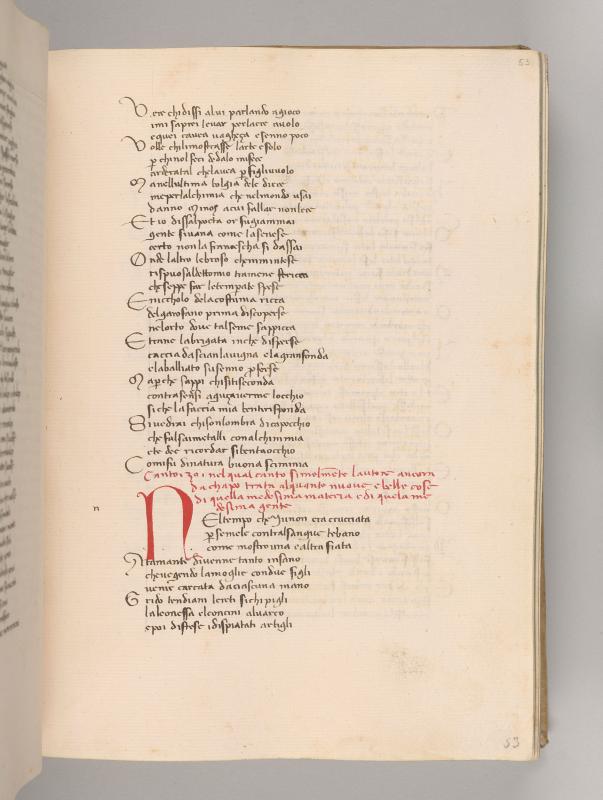 53
Vere chi dissi alui parlando agioco
imi saprei levar perlaere avolo
equei cavea vagheça esenno poco
Volle chilimostrasse larte esolo
p chinol feci dedalo mifece
ardere atal chelavea p figliuolo
Manellultima bolgia dele diece
me perlalchimia che nelmondo usai
danno Minos acui fallar nonlece
Et io dissalpoeta or fugiammai
gente sivana come lasenese
certo non la francescha si dassai
Onde laltro lebroso chemmintese
rispuosaldettomio tramene stricca
che seppe far letemperate spese
Enicholo dela costuma ricca
delgarofano prima discoperse
nelorto dove talseme sappicca
Etrane labrigata inche disperse
caccia dascian lavigna elagranfonda
elaballiato suo senno pferse
Maperche sappi chisitiseconda
contrasensi aguçaverme locchio
siche lafaccia mia bentirisponda
Sivedrai chison lombra dicapocchio
che falsai metalli conalchimmia
ete dee ricordar sebentaocchio
Comifui dinatura buona scimmia
Canto .30. nel qual canto simelmente lautore ancora
da chapo tratta alquante nuove e belle cose
di quella medesima materia e di quela me
desima gente
n
Neltempo che Junon era crucciata
p semele contralsangue tebano
come mostro una ealtra fiata
Atamante divenne tanto insano
che vegendo lamoglie condue figli
venir carcata daciascuna mano
Grido tendiam lereti sichi pigli
la leonessa eleoncini alvarco
epoi distese idispiatati artigli
53